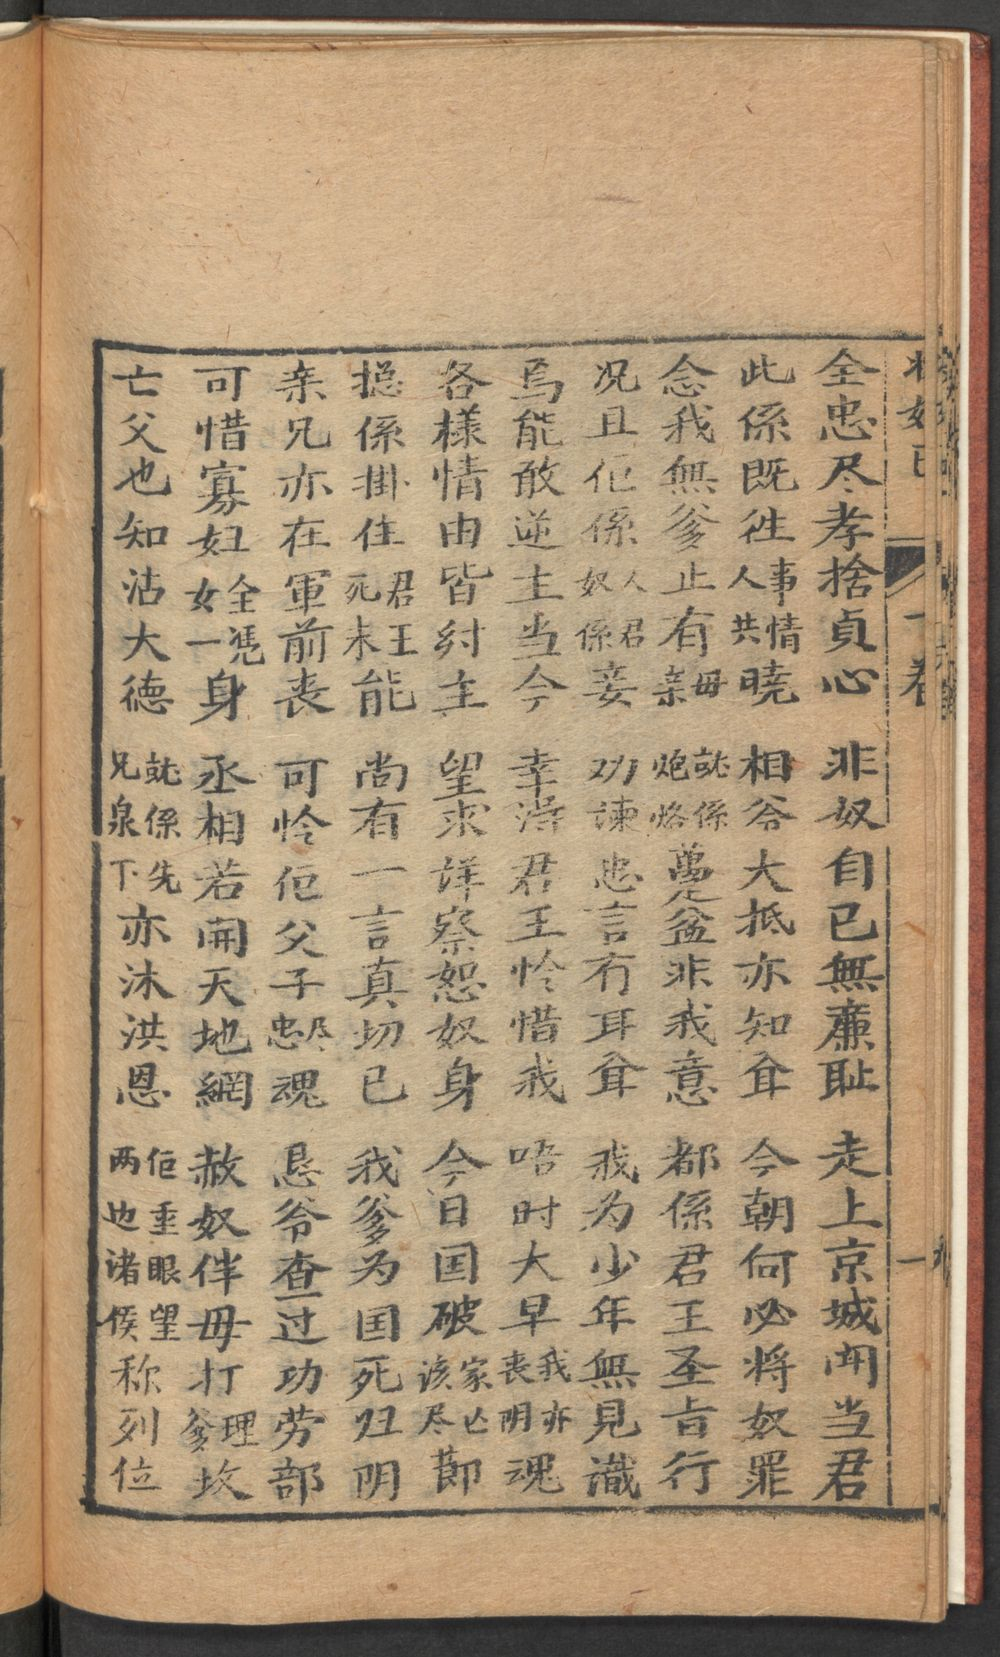 妲己 一卷 一
全忠尽孝捨貞心 非奴自已無廉耻 走上京城閗当君
此係既徃事情人共曉 相爷大抵亦知耸 今朝何必将奴罪
念我無爹止有母亲 就係炮烙躉盆非我意 都係君王圣旨行
况且佢係人君奴係妾 功諫忠言冇耳耸 我为少年無見識
焉能敢逆主当今 幸得君王怜惜我 唔时大早我亦丧阴魂
各樣情由皆紂主 望求详察恕奴身 今日国破家亡该尽節
捴係掛住君王死未能 尚有一言真切已 我爹为国死归阴
亲兄亦在軍前丧 可怜佢父子尽忠魂 恳爷查过功劳部
可惜寡妇全凭女一身 丞相若開天地網 赦奴伴母打理爹坟
亡父也知沾大德 就係先兄泉下亦沐洪恩 佢垂眼望两边诸侯称列位